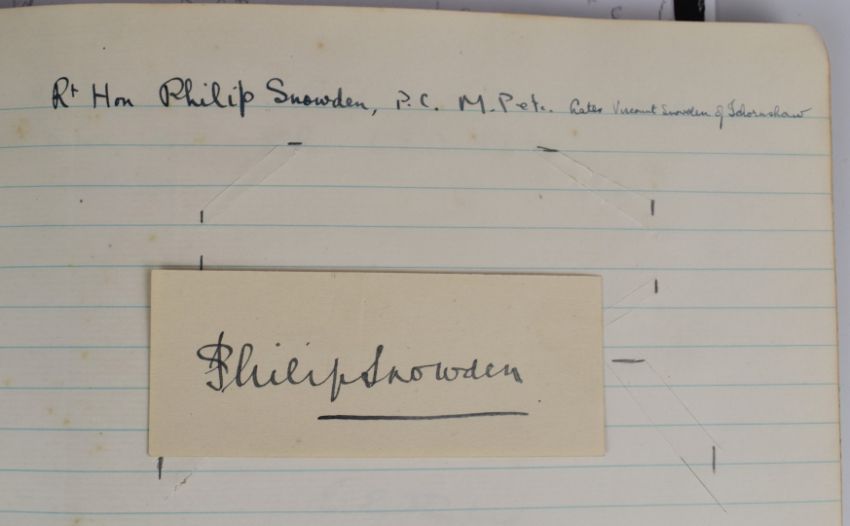 Rt Hon Philip Snowden, P.C. M.P. etc. Later Viscount Snowden of Ickornshaw
Philip Snowden